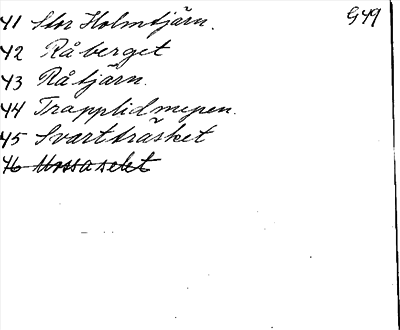 G49
41 Stor Holmtjärn.
42 Råberget
43 Råtjärn.
44 Trapplidmyren.
45 Svartträsket
46 Mossaselet